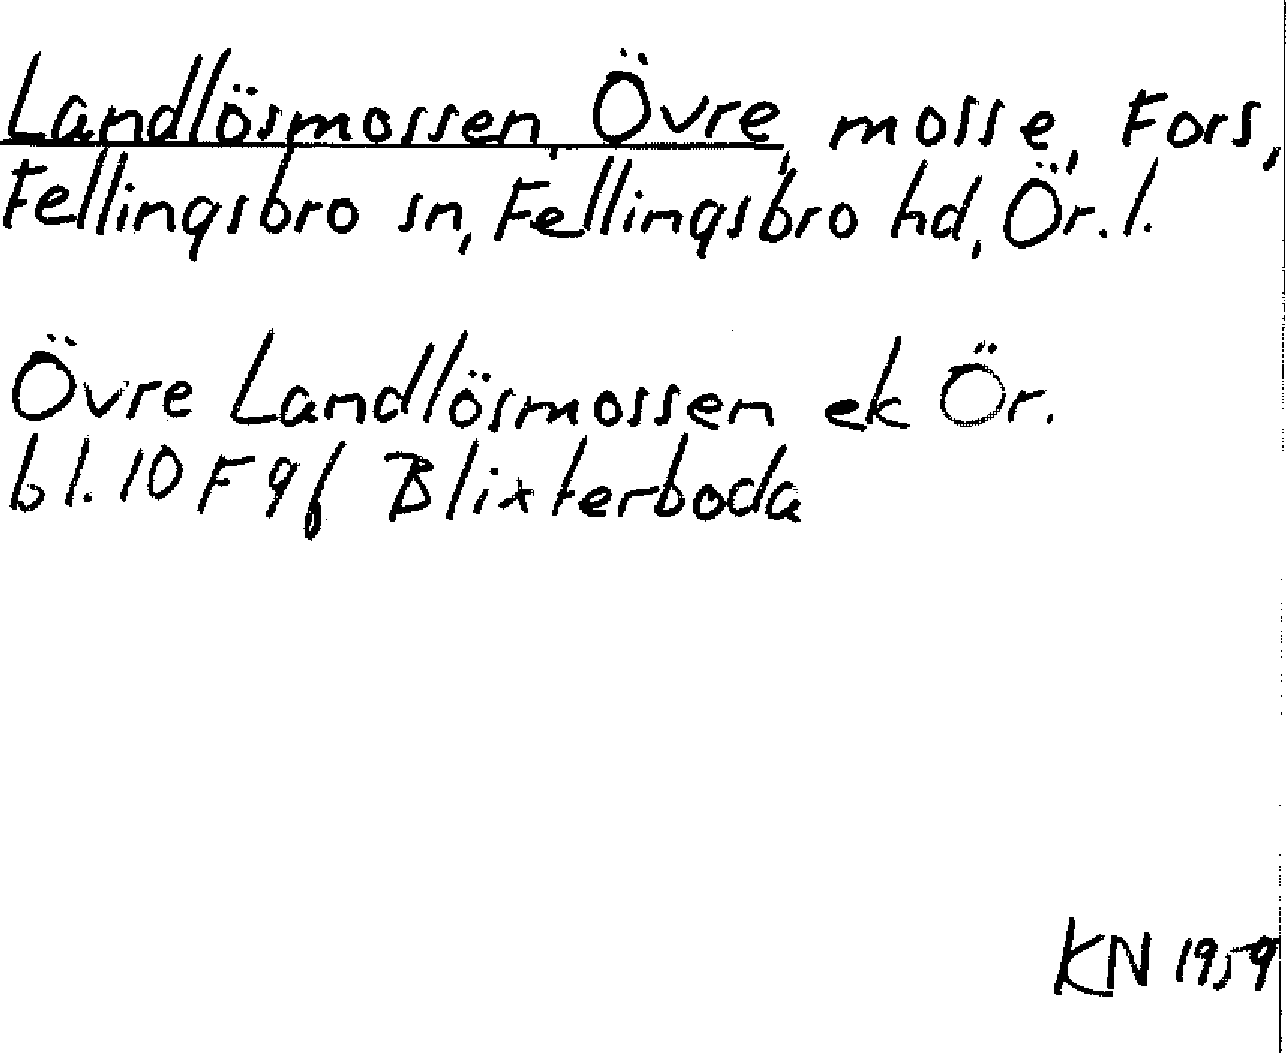 Landlösmossen, Övre, mosse, Fors,
Fellingsbro sn, Fellingsbro hd, Ör. l.
Övre Landlösmossen ek Ör.
bl. 10 F 9f Blixterboda
KN 1959